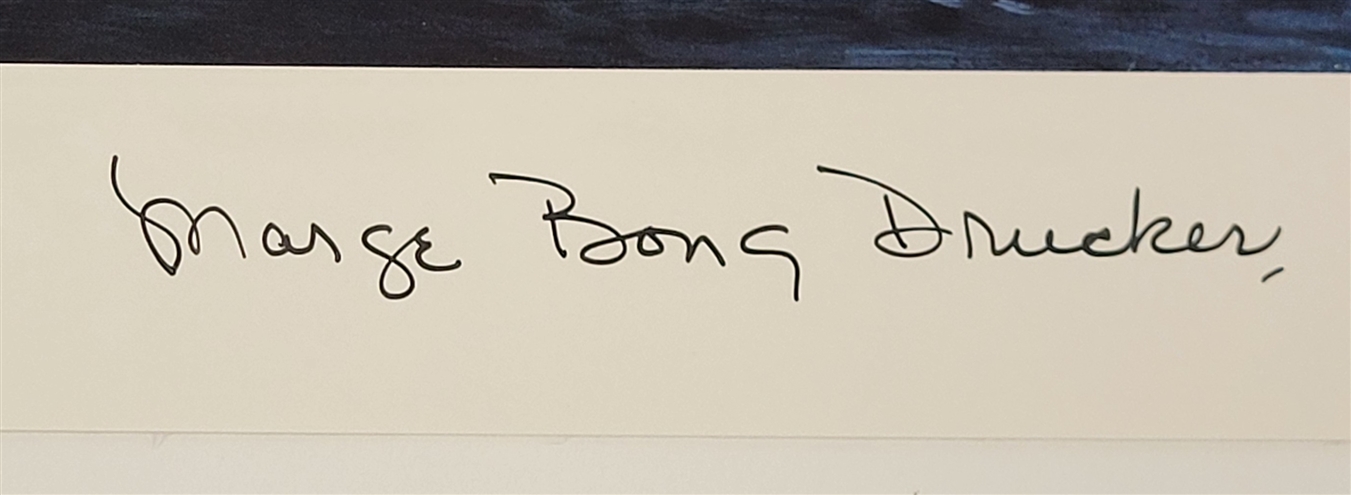 Marge Bong Drucker,